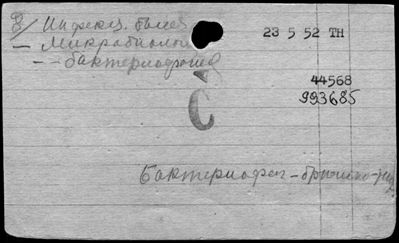 8/ Инфекц. болез
— Микробиолог
— - бактериофагия
23 5 52 TH
44568
993685
C
Бактериофаг — брюшно-